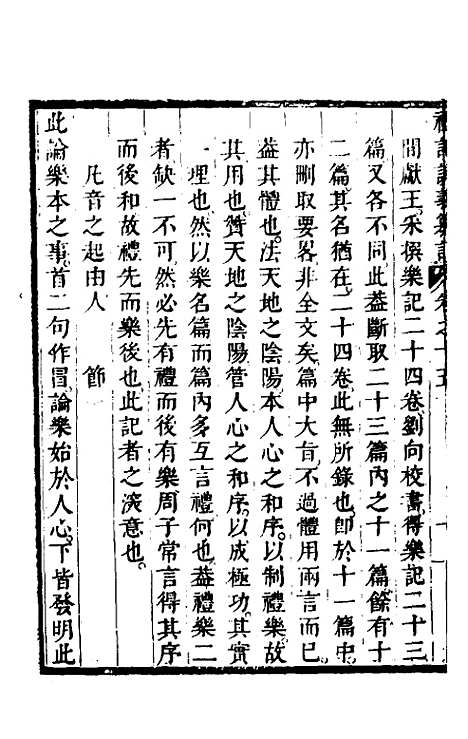 間獻王采僎樂記二十四卷劉向校書得樂記二十三
篇又各不同此葢斷取二十三篇內之十一篇餘有十
二篇其名猶在二十四卷此無所錄也卽於十一篇中
亦刪取要畧非全文矣篇中大旨不過體用兩言而已
葢其體也法天地之陰陽本人心之和序以制禮樂故
其用也贊天地之陰陽管人心之和序以成極功其實
一理也然以樂名篇而篇內多互言禮何也葢禮樂二
者缺一不可然必先有禮而後有樂周子常言得其序
而後和故禮先而樂後也此記者之深意也
凡音之起由人 節
此論樂本之事首二句作冒論樂始於人心下皆發明此